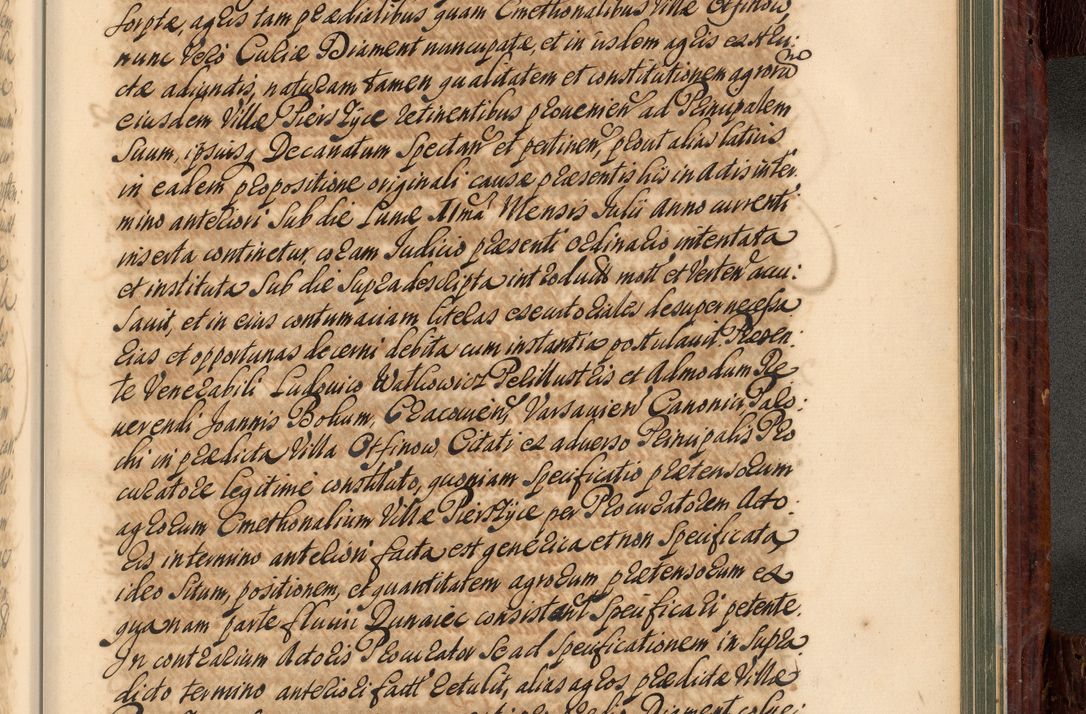 scriptæ, agris tam prædialibus quam Cmethonalibus Villæ Otfinow
nunc vero Curiæ Diament nuncupatæ, et in iisdem agris ex Alu:
ctæ adiunctis, naturam tamen qualitatem et constitutionem agrorū
eiusdem Villæ Pierszyce retinentibus provenien ad Principalem
Suum, ipsiusq Decanatum Spectan et pertinen, prout alias latius
in eadem propositione originali causæ præsentis hic in Actis in ter:
mino anteriori Sub die Lunæ 11ma Mensis Julii Anno currenti
inserta continetur, coram Judicio præsenti ordinario intentata
et instituta Sub die Supra descripta introduct mott et Verten accu:
Savit, et in eius contumaciam literas executoriales desuper necessa
rias et opportunas decerni debita cum instantia postulavit. Præsen:
te Venerabili Ludovico Watkowicz Perillustris et Admodum Re
verendi Joannis Bohum, Cracovien, Varsavien Canonici Paro:
chi in prædicta Villa Otfinow, Citati ex adverso Principalis Pro
curatore legitime constituto, quoniam Specificatio prætensorum
agrorum Cmethonalium Villæ Pierszyce per Procuratorem Acto:
ris in termino anteriori facta est generica et non Specificata,
ideo Situm, positionem, et quantitatem agrorum prætensorum ex
quanam parte fluvii Dunaiec consistant Specificari petente.
In contrarium Actoris Procurator Se ad Specificationem in Supra
dicto termino anteriori fact retulit, alias agros, prædictæ Villæ